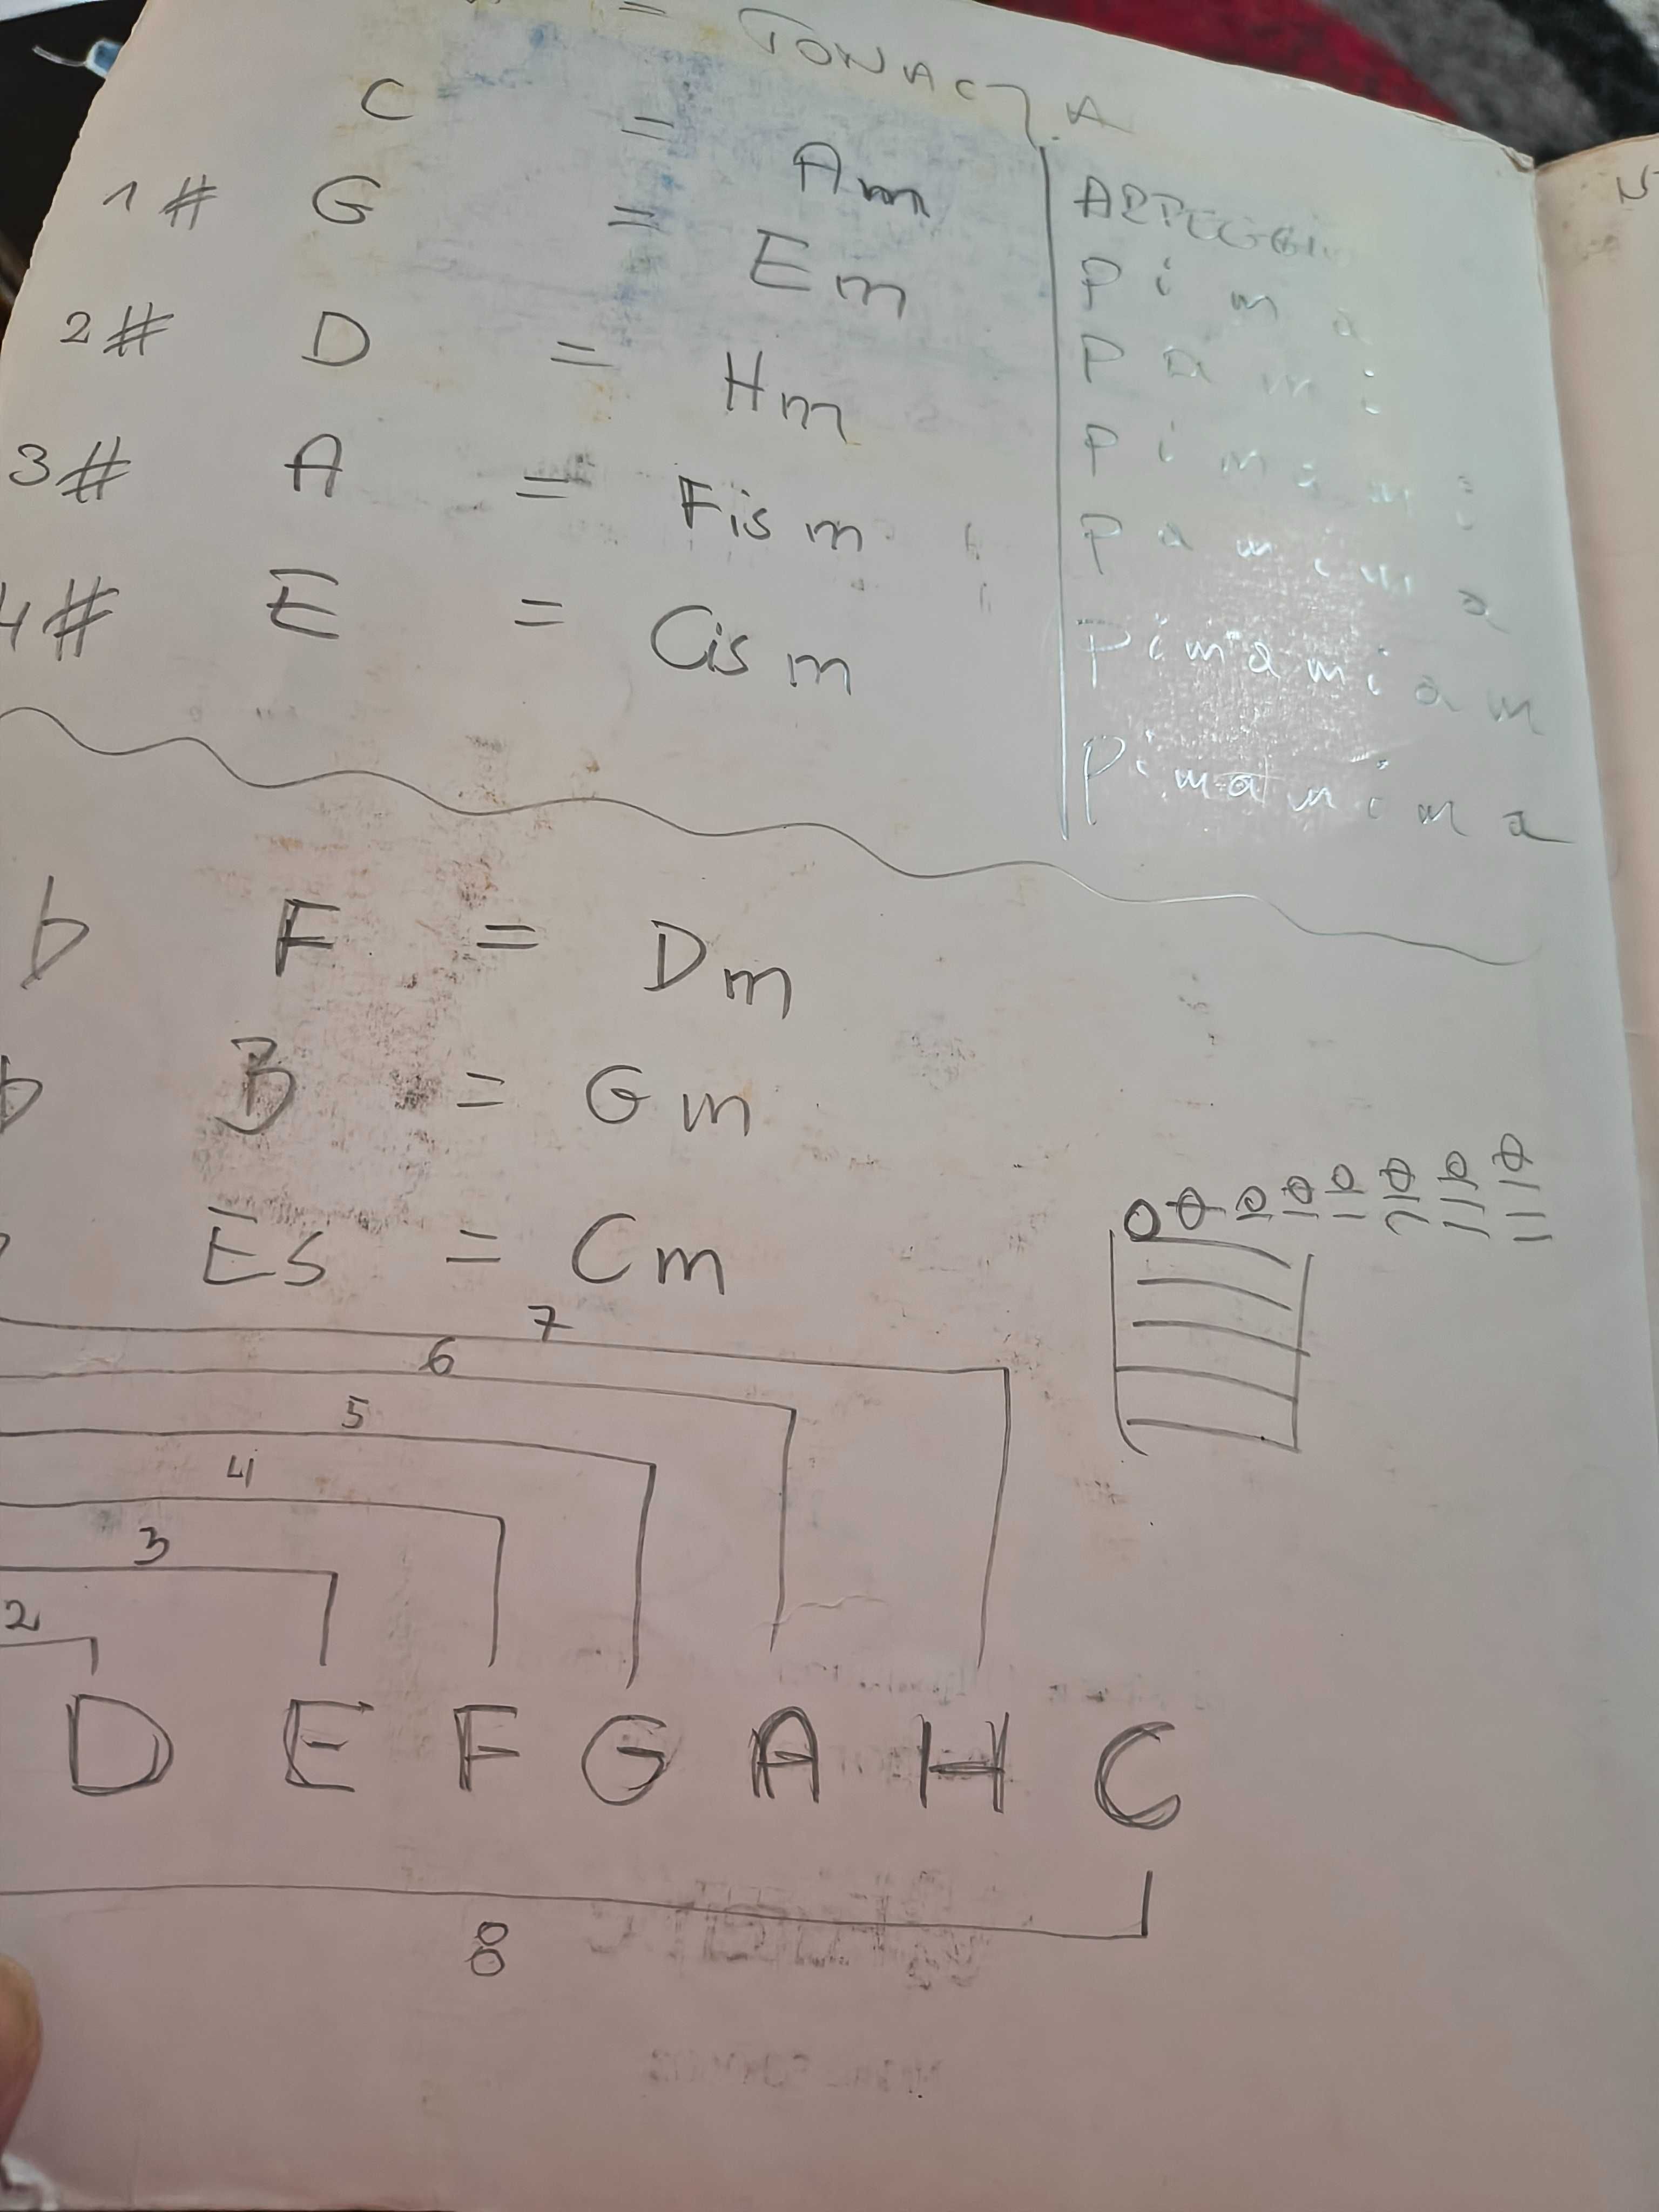 = TONACJA
C = Am
1# G = Em
2# D = Hm
3# A = Fis m
4# E = Cis m
ARPEGGIO
P i m a
P a m i
P i m a m i
P a m i m a
P i m a m i a m
P i m a m i m a
b F = Dm
b B = Gm
Es = Cm
7
6
5
4
3
2
D E F G A H C
8